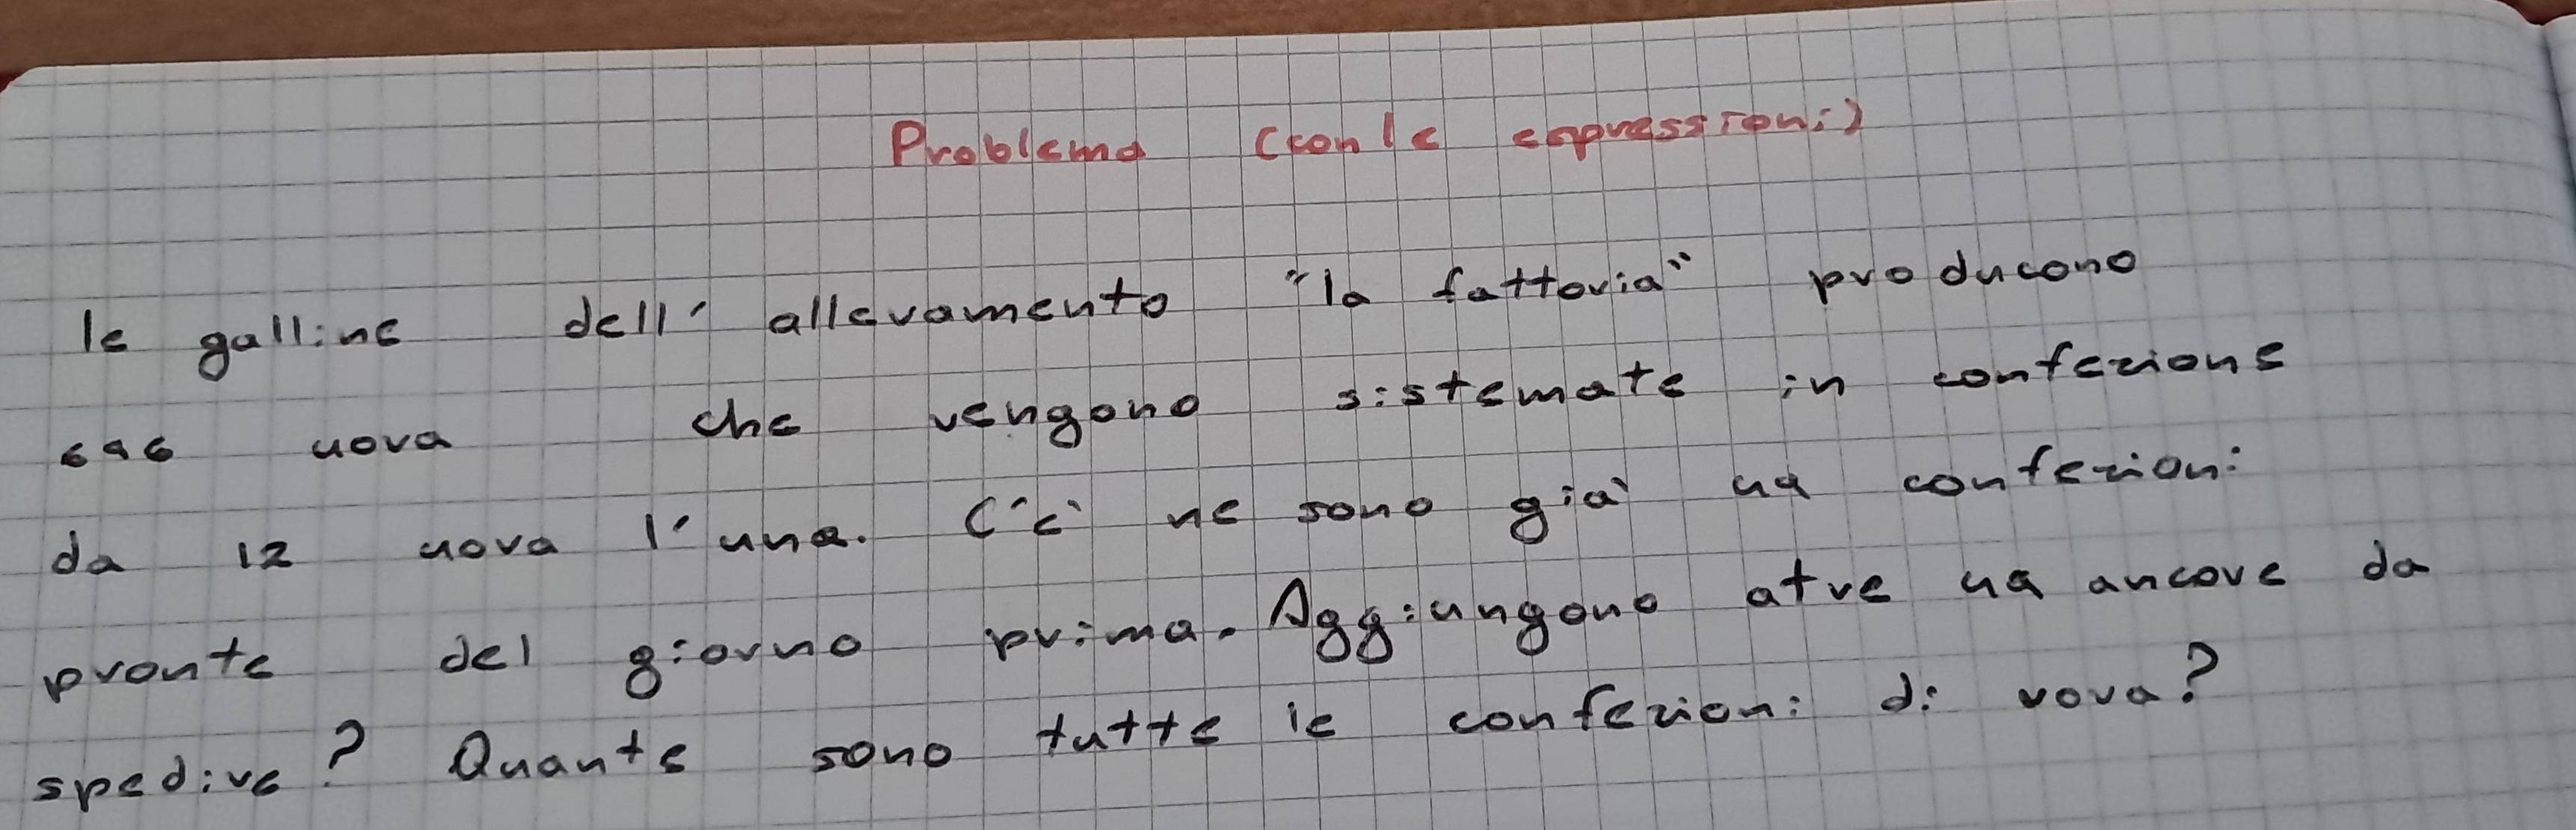 Problema (con le espressioni)
le galline dell'allevamento "la fattoria" producono
696 uova che vengono sistemate in confezione
da 12 uova l'una. C'è ne sono già 49 confezioni
pronte del giorno prima. Aggiungono atre 49 ancore da
spedire? Quante sono tutte le confezioni di vova?